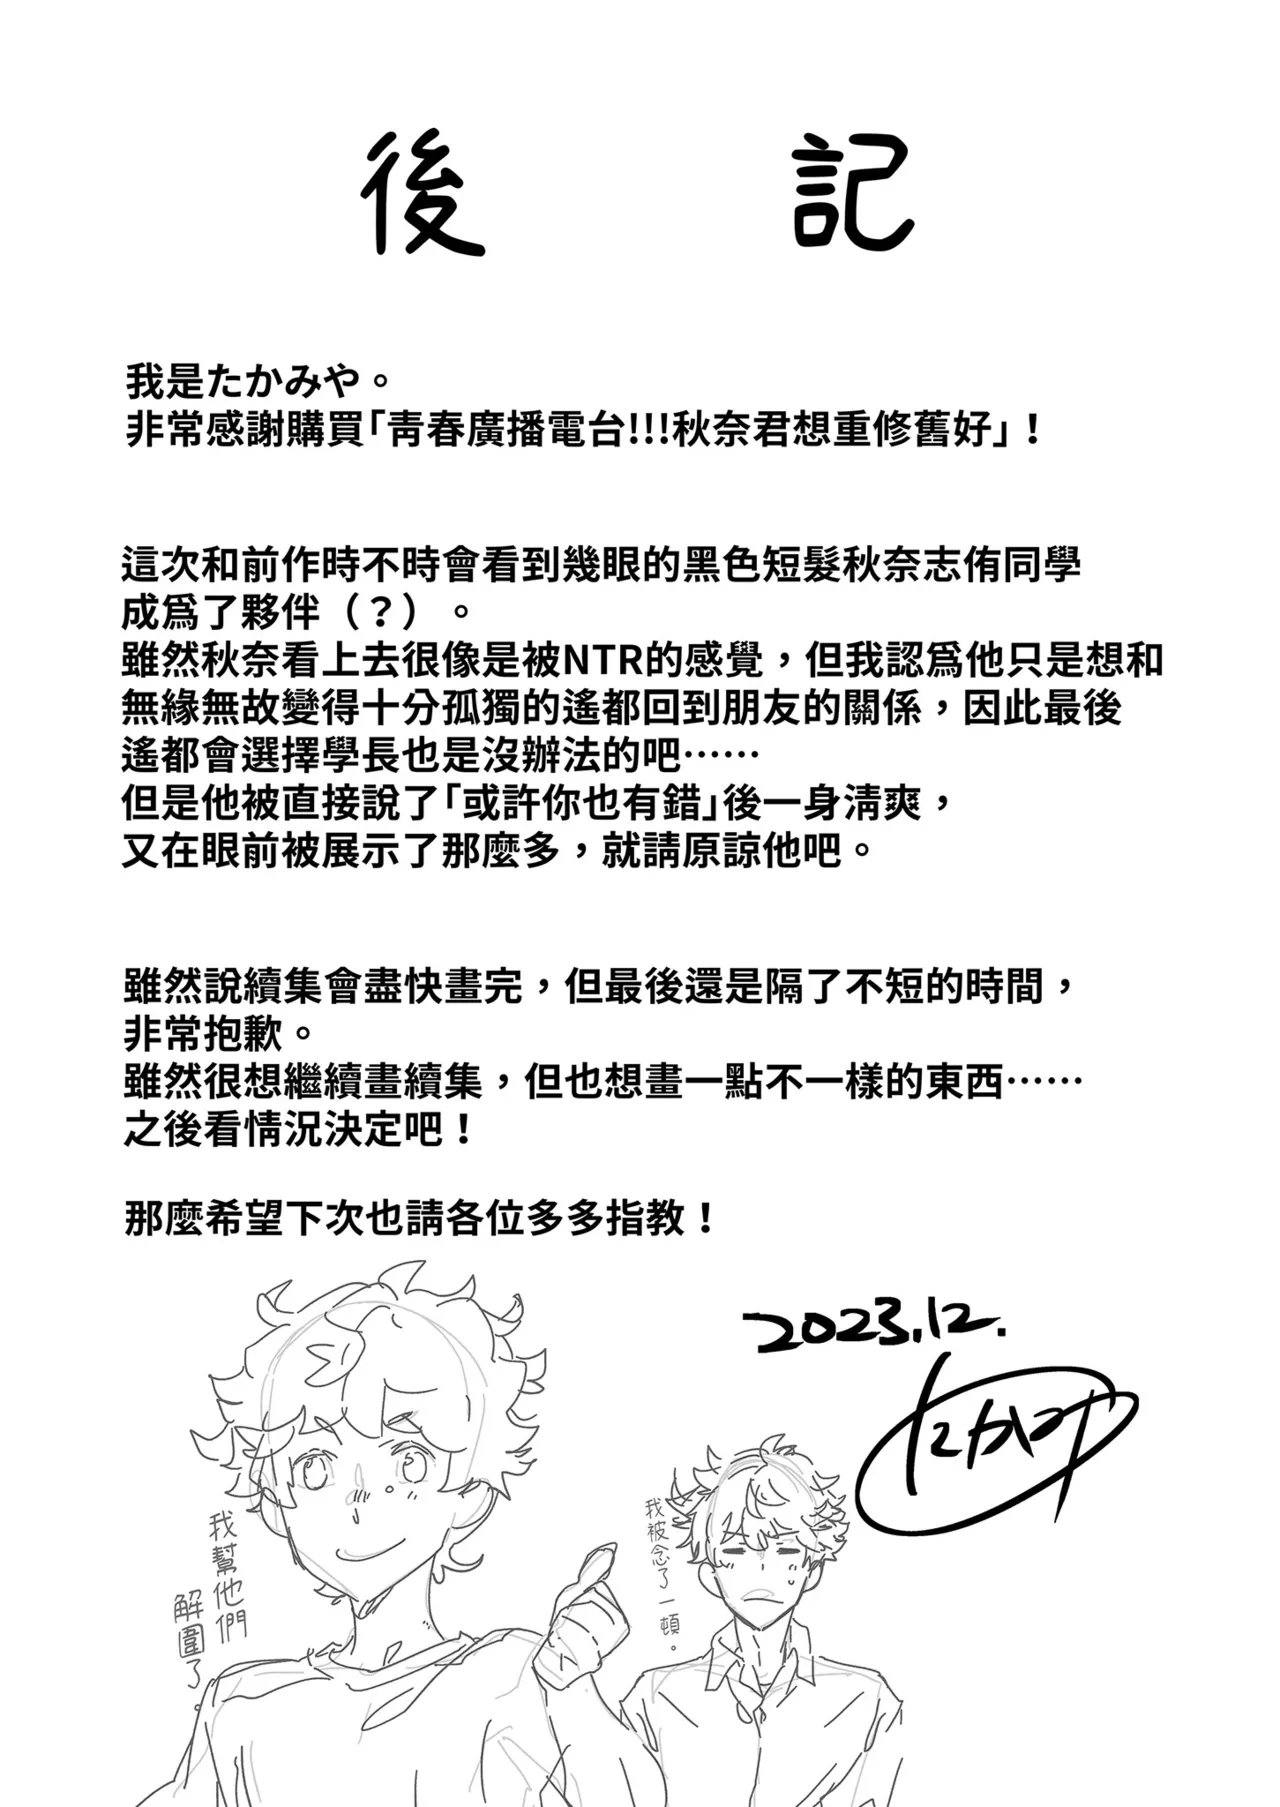 後記
我是たかみや。
非常感謝購買「靑春廣播電台!!!秋奈君想重修舊好」！
這次和前作時不時會看到幾眼的黑色短髮秋奈志侑同學
成爲了夥伴（？）。
雖然秋奈看上去很像是被NTR的感覺，但我認爲他只是想和
無緣無故變得十分孤獨的遙都回到朋友的關係，因此最後
遙都會選擇學長也是沒辦法的吧⋯⋯
但是他被直接說了「或許你也有錯」後一身淸爽，
又在眼前被展示了那麼多，就請原諒他吧。
雖然說續集會盡快畫完，但最後還是隔了不短的時間，
非常抱歉。
雖然很想繼續畫續集，但也想畫一點不一樣的東西⋯⋯
之後看情況決定吧！
那麼希望下次也請各位多多指教！
2023.12.
たかみや
我幫他們
解圍了。
我被念了一頓。